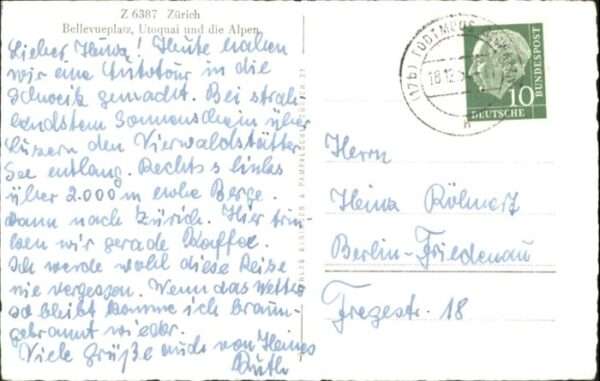 Z 6387 Zürich
Bellevueplatz, Utoquai und die Alpen
Lieber Heinz! Heute haben
wir eine Autotour in die
Schweiz gemacht. Bei strah
lendstem Sonnenschein über
Luzern den Vierwaldstätter
See entlang. Rechts & links
über 2.000 m hohe Berge.
Dann nach Zürich. Hier trin-
ken wir gerade Kaffee.
Ich werde wohl diese Reise
nie vergessen. Wenn das Wetter
so bleibt komme ich braun-
gebrannt wieder.
Viele Grüße auch von
Ruth
(17b) TODTMOOS
18.12.5
10
DEUTSCHE
BUNDESPOST
Herrn
Heinz Röhnert
Berlin-Friedenau
Fregestr. 18